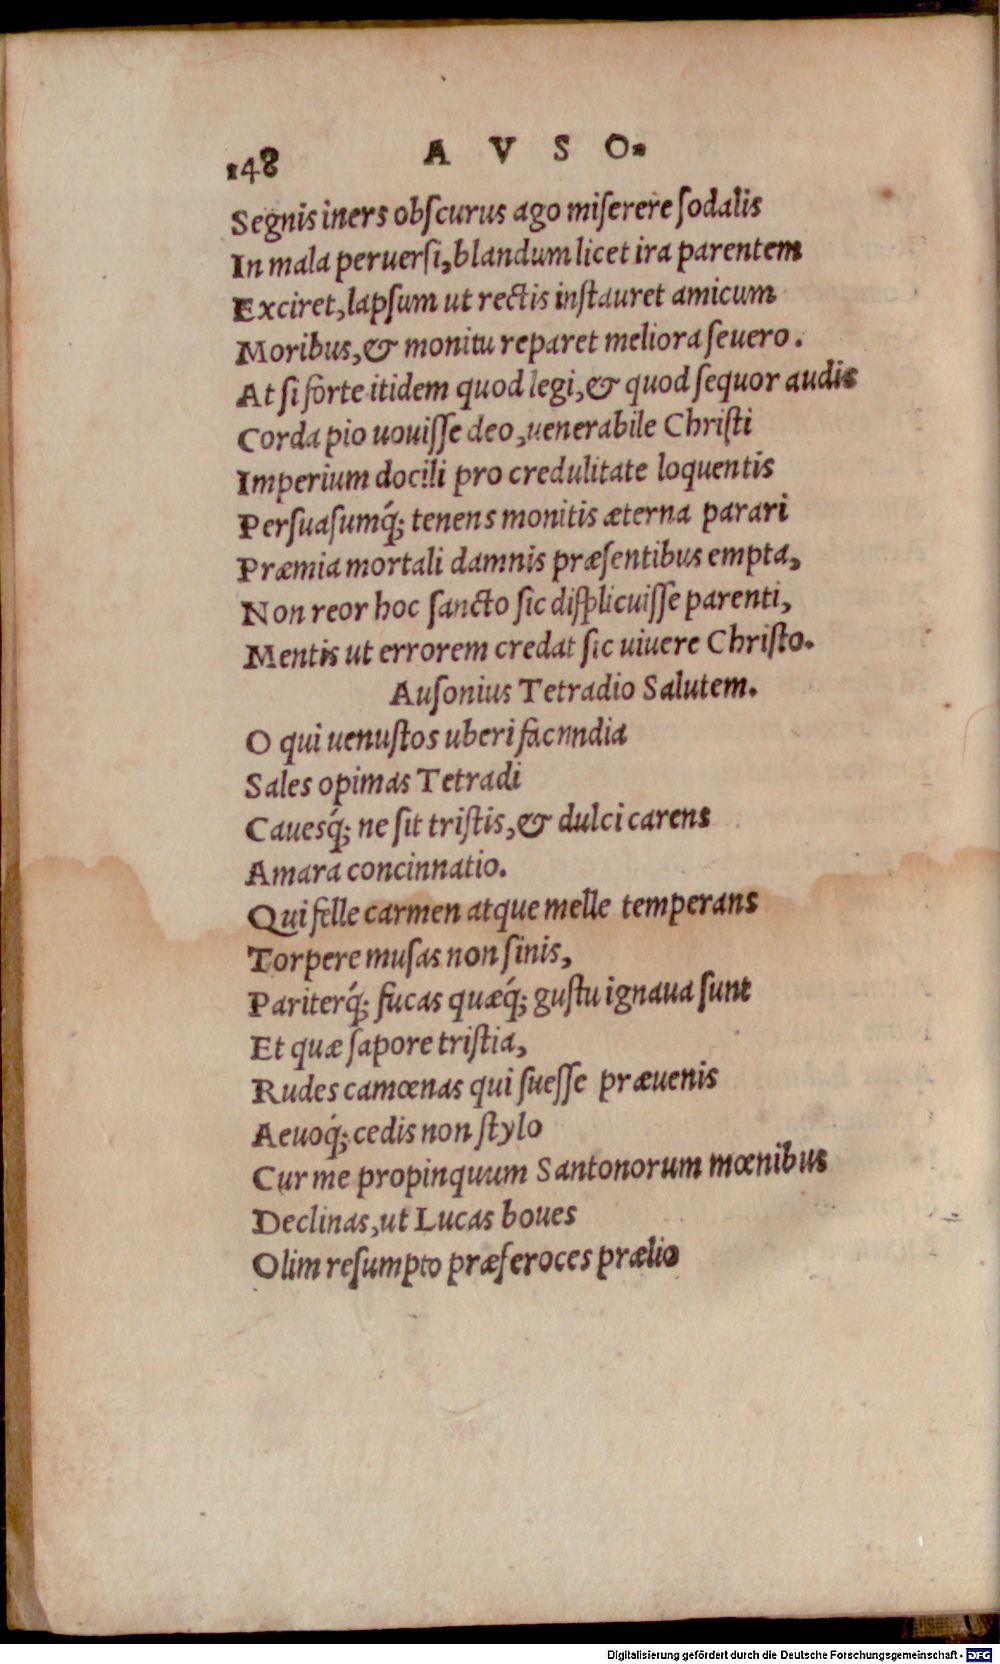 148 A V S O.
Segnis iners obſcurus ago miſerere ſodalis
In mala peruerſi, blandum licet ira parentem
Exciret, lapſum ut rectis inſtauret amicum
Moribus, & monitu reparet meliora ſeuero.
At ſi forte itidem quod legi, & quod ſequor audis
Corda pio uouiſſe deo, uenerabile Chriſti
Imperium docili pro credulitate loquentis
Perſuaſumq́; tenens monitis æterna parari
Præmia mortali damnis præſentibus empta,
Non reor hoc ſancto ſic diſplicuiſſe parenti,
Mentis ut errorem credat ſic uiuere Chriſto.
Auſonius Tetradio Salutem.
O qui uenuſtos uberi facnndia
Sales opimas Tetradi
Cauesq́; ne ſit triſtis, & dulci carens
Amara concinnatio.
Qui felle carmen atque melle temperans
Torpere muſas non ſinis,
Pariterq́; fucas quæq́; guſtu ignaua ſunt
Et quæ ſapore triſtia,
Rudes camœnas qui ſueſſe præuenis
Aeuoq́; cedis non ſtylo
Cur me propinquum Santonorum mœnibus
Declinas, ut Lucas boues
Olim reſumpto præferoces prælio
Digitalisierung gefördert durch die Deutsche Forschungsgemeinschaft - DFG